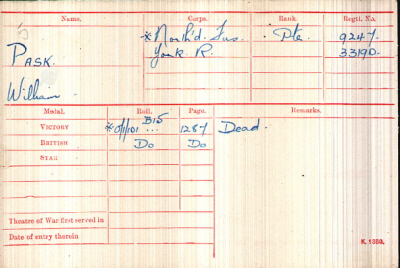 Name. Corps. Rank. Regtl. No.
Pask. * North'd. Fus. Pte. 9247.
William. York R. 33190.
Medal. Roll. Page. Remarks.
Victory *O/1/101 B15 ... 1287 Dead.
British Do Do
Star
Theatre of War first served in
Date of entry therein
K. 1380.